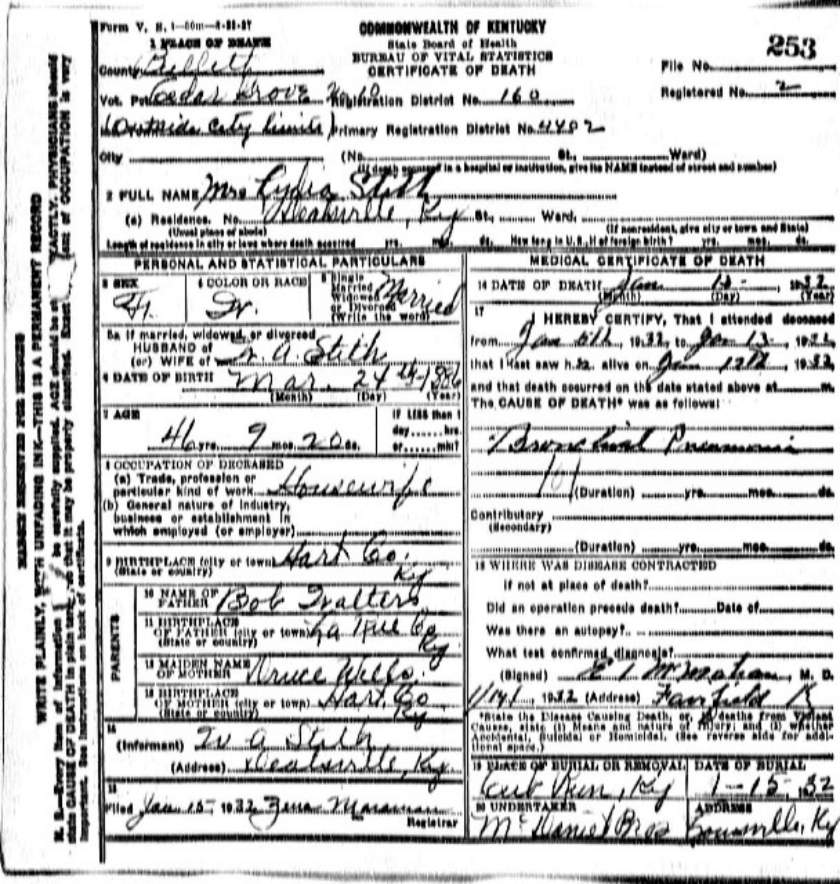 Form V. S. 1-50m-4-21-27
COMMONWEALTH OF KENTUCKY
State Board of Health
BUREAU OF VITAL STATISTICS
CERTIFICATE OF DEATH
253
File No.
Registered No. 2
1 PLACE OF DEATH
County Bullitt
Vot. Pct. Cedar Grove No 10 Registration District No. 160
(Outside City Limits) Primary Registration District No. 4402
City (No. St., Ward)
(If death occurred in a hospital or institution, give its NAME instead of street and number)
2 FULL NAME Mrs Lydia Stith
(a) Residence. No. Deatsville, Ky St., Ward,
(Usual place of abode) (If nonresident, give city or town and State)
Length of residence in city or town where death occurred yrs. mos. ds. How long in U. S., if of foreign birth? yrs. mos. ds.
PERSONAL AND STATISTICAL PARTICULARS
3 SEX
4 COLOR OR RACE
5 Single
Married
Widowed
or Divorced
(Write the word)
Married
F.
W.
5a If married, widowed, or divorced
HUSBAND of
(or) WIFE of W. A. Stith
6 DATE OF BIRTH Mar. 24th 1886
(Month) (Day) (Year)
7 AGE
46 yrs. 9 mos. 20 ds.
If LESS than 1
day hrs.
or min?
8 OCCUPATION OF DECEASED
(a) Trade, profession or
particular kind of work Housewife
(b) General nature of industry,
business or establishment in
which employed (or employer)
9 BIRTHPLACE (city or town) Hart Co.
(State or country) Ky
PARENTS
10 NAME OF
FATHER Bob Walters
11 BIRTHPLACE
OF FATHER (city or town) La Rue Co
(State or country) Ky.
12 MAIDEN NAME
OF MOTHER Druce Wells
13 BIRTHPLACE
OF MOTHER (city or town) Hart Co
(State or country) Ky
14
(Informant) W A Stith
(Address) Deatsville, Ky
15
Filed Jan. 15, 1932 Zena Maraman
Registrar
MEDICAL CERTIFICATE OF DEATH
16 DATE OF DEATH Jan 13, 1932
(Month) (Day) (Year)
17
I HEREBY CERTIFY, That I attended deceased
from Jan 5th, 1932, to Jan 13, 1932
that I last saw h alive on Jan 12th, 1932,
and that death occurred on the date stated above at m.
The CAUSE OF DEATH* was as follows:
Bronchial Pneumonia
(Duration) yrs. mos. ds.
Contributory
(Secondary)
(Duration) yrs. mos. ds.
18 WHERE WAS DISEASE CONTRACTED
if not at place of death?
Did an operation precede death? Date of
Was there an autopsy?
What test confirmed diagnosis?
(Signed) E L McMahan, M. D.
1/14, 1932 (Address) Fairfield K
*State the Disease Causing Death, or, in deaths from Violent
Causes, state (1) Means and nature of Injury; and (2) whether
Accidental, Suicidal or Homicidal. (See reverse side for addi-
tional space.)
19 PLACE OF BURIAL OR REMOVAL
DATE OF BURIAL
Cub Run, Ky
1-15, 32
20 UNDERTAKER
ADDRESS
McDaniel Bros
Bonnieville, Ky
MARGIN RESERVED FOR BINDING
WRITE PLAINLY, WITH UNFADING INK—THIS IS A PERMANENT RECORD
N. B.—Every item of information should be carefully supplied. AGE should be stated EXACTLY. PHYSICIANS should
state CAUSE OF DEATH in plain terms, so that it may be properly classified. Exact statement of OCCUPATION is very
important. See instructions on back of certificate.